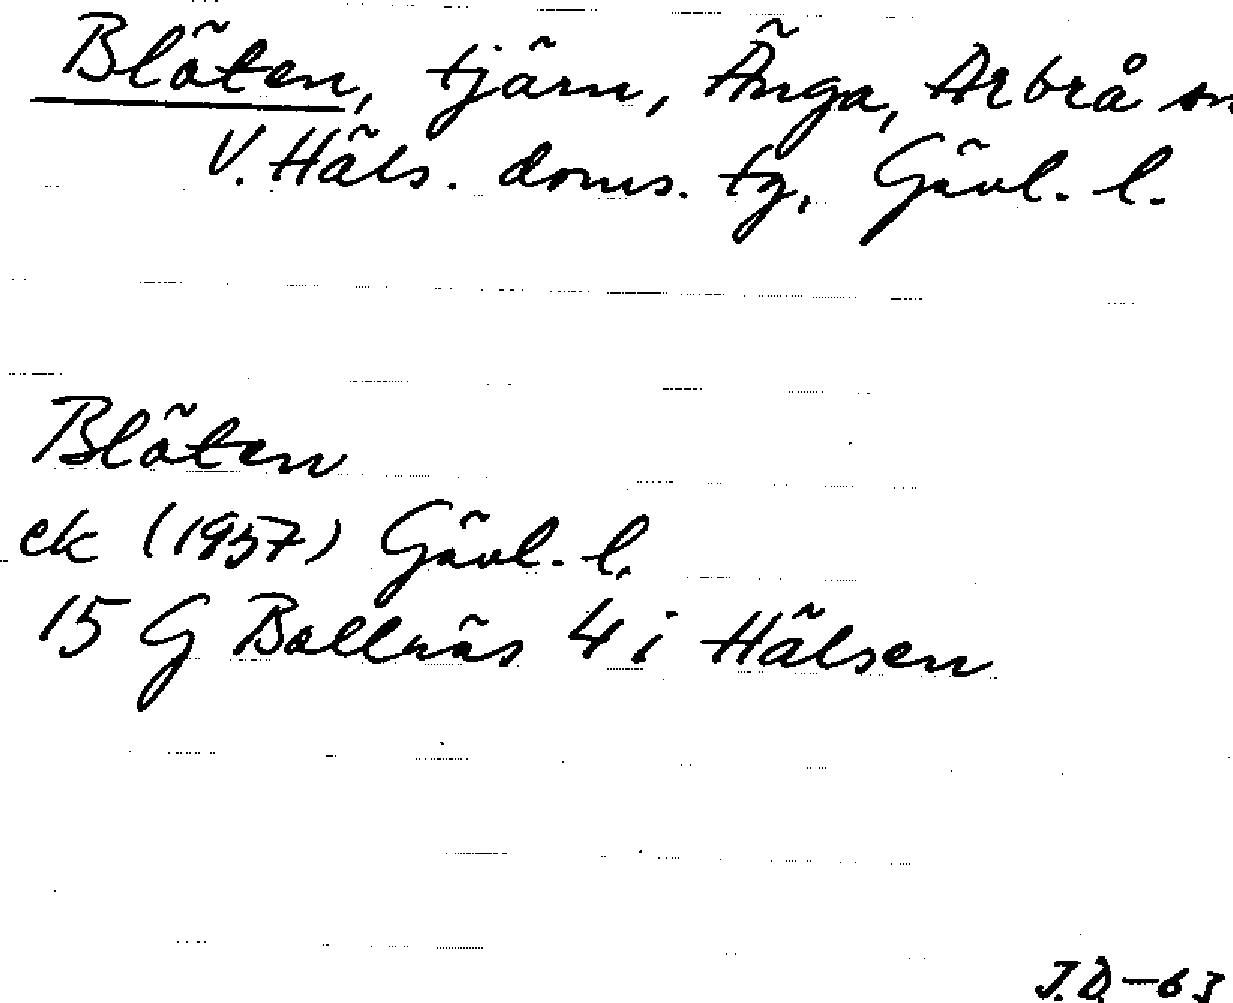 Blöten, tjärn, Änga, Arbrå sn
V. Häls. doms. tg, Gävl. l.
Blöten
ek (1957) Gävl. l.
15 G Bollnäs 4 i Hälsen
J.D-63